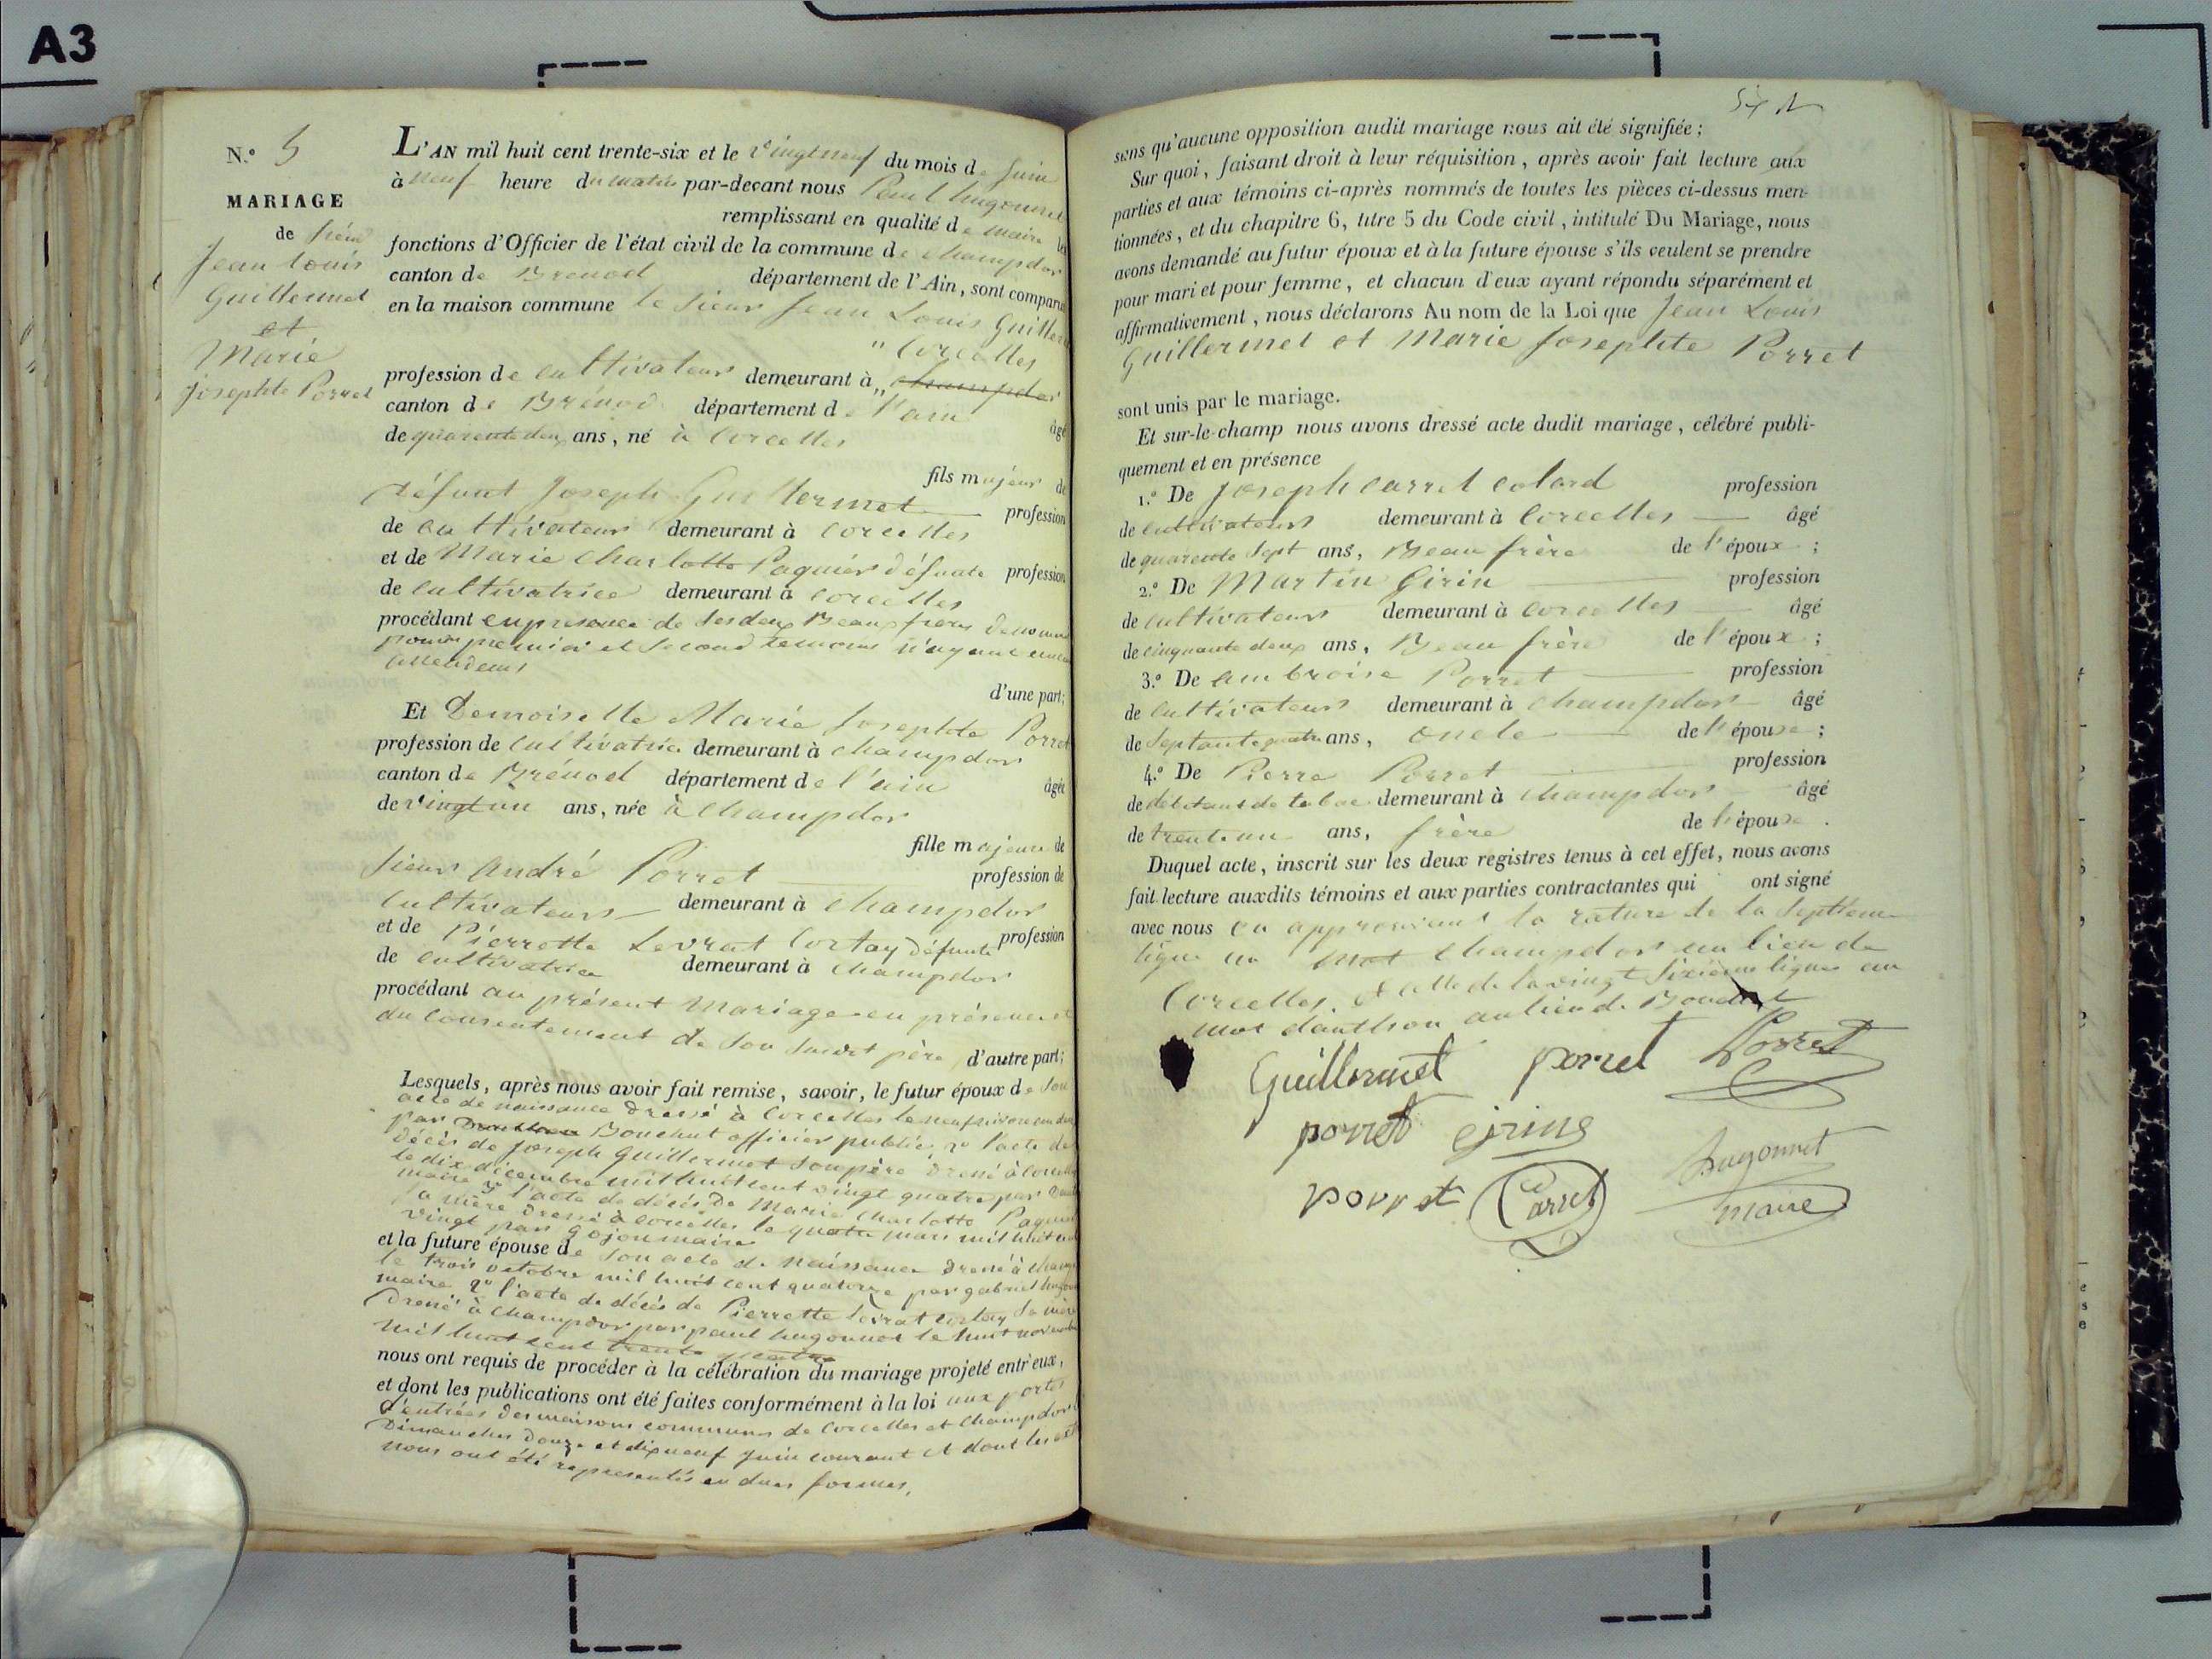 A3
N.° 5
MARIAGE
de
Jean Louis
Guillermet
et
Marie
Josephte Porret
L'AN mil huit cent trente-six et le vingtneuf du mois de Juin
à neuf heure du matin par-devant nous Paul hugonnet
remplissant en qualité de maire les
fonctions d'Officier de l'état civil de la commune de champdor
canton de Brenod département de l'Ain, sont comparu
en la maison commune le sieur Jean Louis Guillermet
" Corcelles
profession de cultivateur demeurant à " champdor
canton de Brénod département de l'ain âgé
de quarente deux ans, né à Corcelles
fils majeur de
défunt Joseph Guillermet profession
de cultivateur demeurant à corcelles
et de Marie Charlotte Paquier défunte profession
de cultivatrice demeurant à corcelles
procédant en présence de ses deux Beaux frères dénommés
pour premier et second temoins n'ayant aucun
assendens
d'une part;
Et Demoiselle Marie Josephte Porret
profession de cultivatrice demeurant à champdor
canton de Brénod département de l'ain âgée
de vingt un ans, née à Champdor
fille majeure de
sieur André Porret profession de
cultivateur demeurant à champdor
et de Pierrette Levrat Cortay défunte profession
de cultivatrice demeurant à champdor
procédant au présent mariage en présence et
du consentement de son susdit père d'autre part;
Lesquels, après nous avoir fait remise, savoir, le futur époux de son
acte de naissance dressé à Corcelles le neuf
par Bouchut officier public, 2° l'acte de
décès de Joseph Guillermet son père dressé à Corcelles
le dix décembre mil huit cent vingt quatre par
maire 3° l'acte de décès de Marie Charlotte Paquier
sa mère dressé à Corcelles le quatre mars mil huit cent
vingt par Gojon maire
et la future épouse de son acte de naissance dressé à champdor
le trois octobre mil huit cent quatorze par gabriel hugonnet
maire 2° l'acte de décès de Pierrette Levrat Cortay sa mère
dressé à Champdor par paul hugonnet le huit novembre
mil huit cent trente quatre
nous ont requis de procéder à la célébration du mariage projeté entr'eux,
et dont les publications ont été faites conformément à la loi aux portes
d'entrées des maisons communes de Corcelles et Champdor
Dimanches douze et dixneuf Juin courant et dont les
nous ont été représentés en dues formes,
sans qu'aucune opposition audit mariage nous ait été signifiée;
Sur quoi, faisant droit à leur réquisition, après avoir fait lecture aux
parties et aux témoins ci-après nommés de toutes les pièces ci-dessus men-
tionnées, et du chapitre 6, titre 5 du Code civil, intitulé Du Mariage, nous
avons demandé au futur époux et à la future épouse s'ils veulent se prendre
pour mari et pour femme, et chacun d'eux ayant répondu séparément et
affirmativement, nous déclarons Au nom de la Loi que Jean Louis
Guillermet et Marie Josephte Porret
sont unis par le mariage.
Et sur-le-champ nous avons dressé acte dudit mariage, célébré publi-
quement et en présence
1.° De Joseph Carret Colard profession
de cultivateur demeurant à Corcelles âgé
de quarente sept ans, Beau frère de l'époux;
2.° De Martin Girin profession
de cultivateur demeurant à corcelles âgé
de cinquante deux ans, Beau frère de l'époux;
3.° De ambroise Porret profession
de cultivateur demeurant à champdor âgé
de septante quatre ans, oncle de l'épouse;
4.° De Pierre Porret profession
de debitant de tabac demeurant à champdor âgé
de trente un ans, frère de l'épouse.
Duquel acte, inscrit sur les deux registres tenus à cet effet, nous avons
fait lecture auxdits témoins et aux parties contractantes qui ont signé
avec nous en approuvant la rature de la septieme
ligne au mot champdor au lieu de
Corcelles, et celle de la vingt sixième ligne au
mot au lieu de Bouchut
Guillermet porret Porret
porret girins
porret Carret Hugonnet
maire